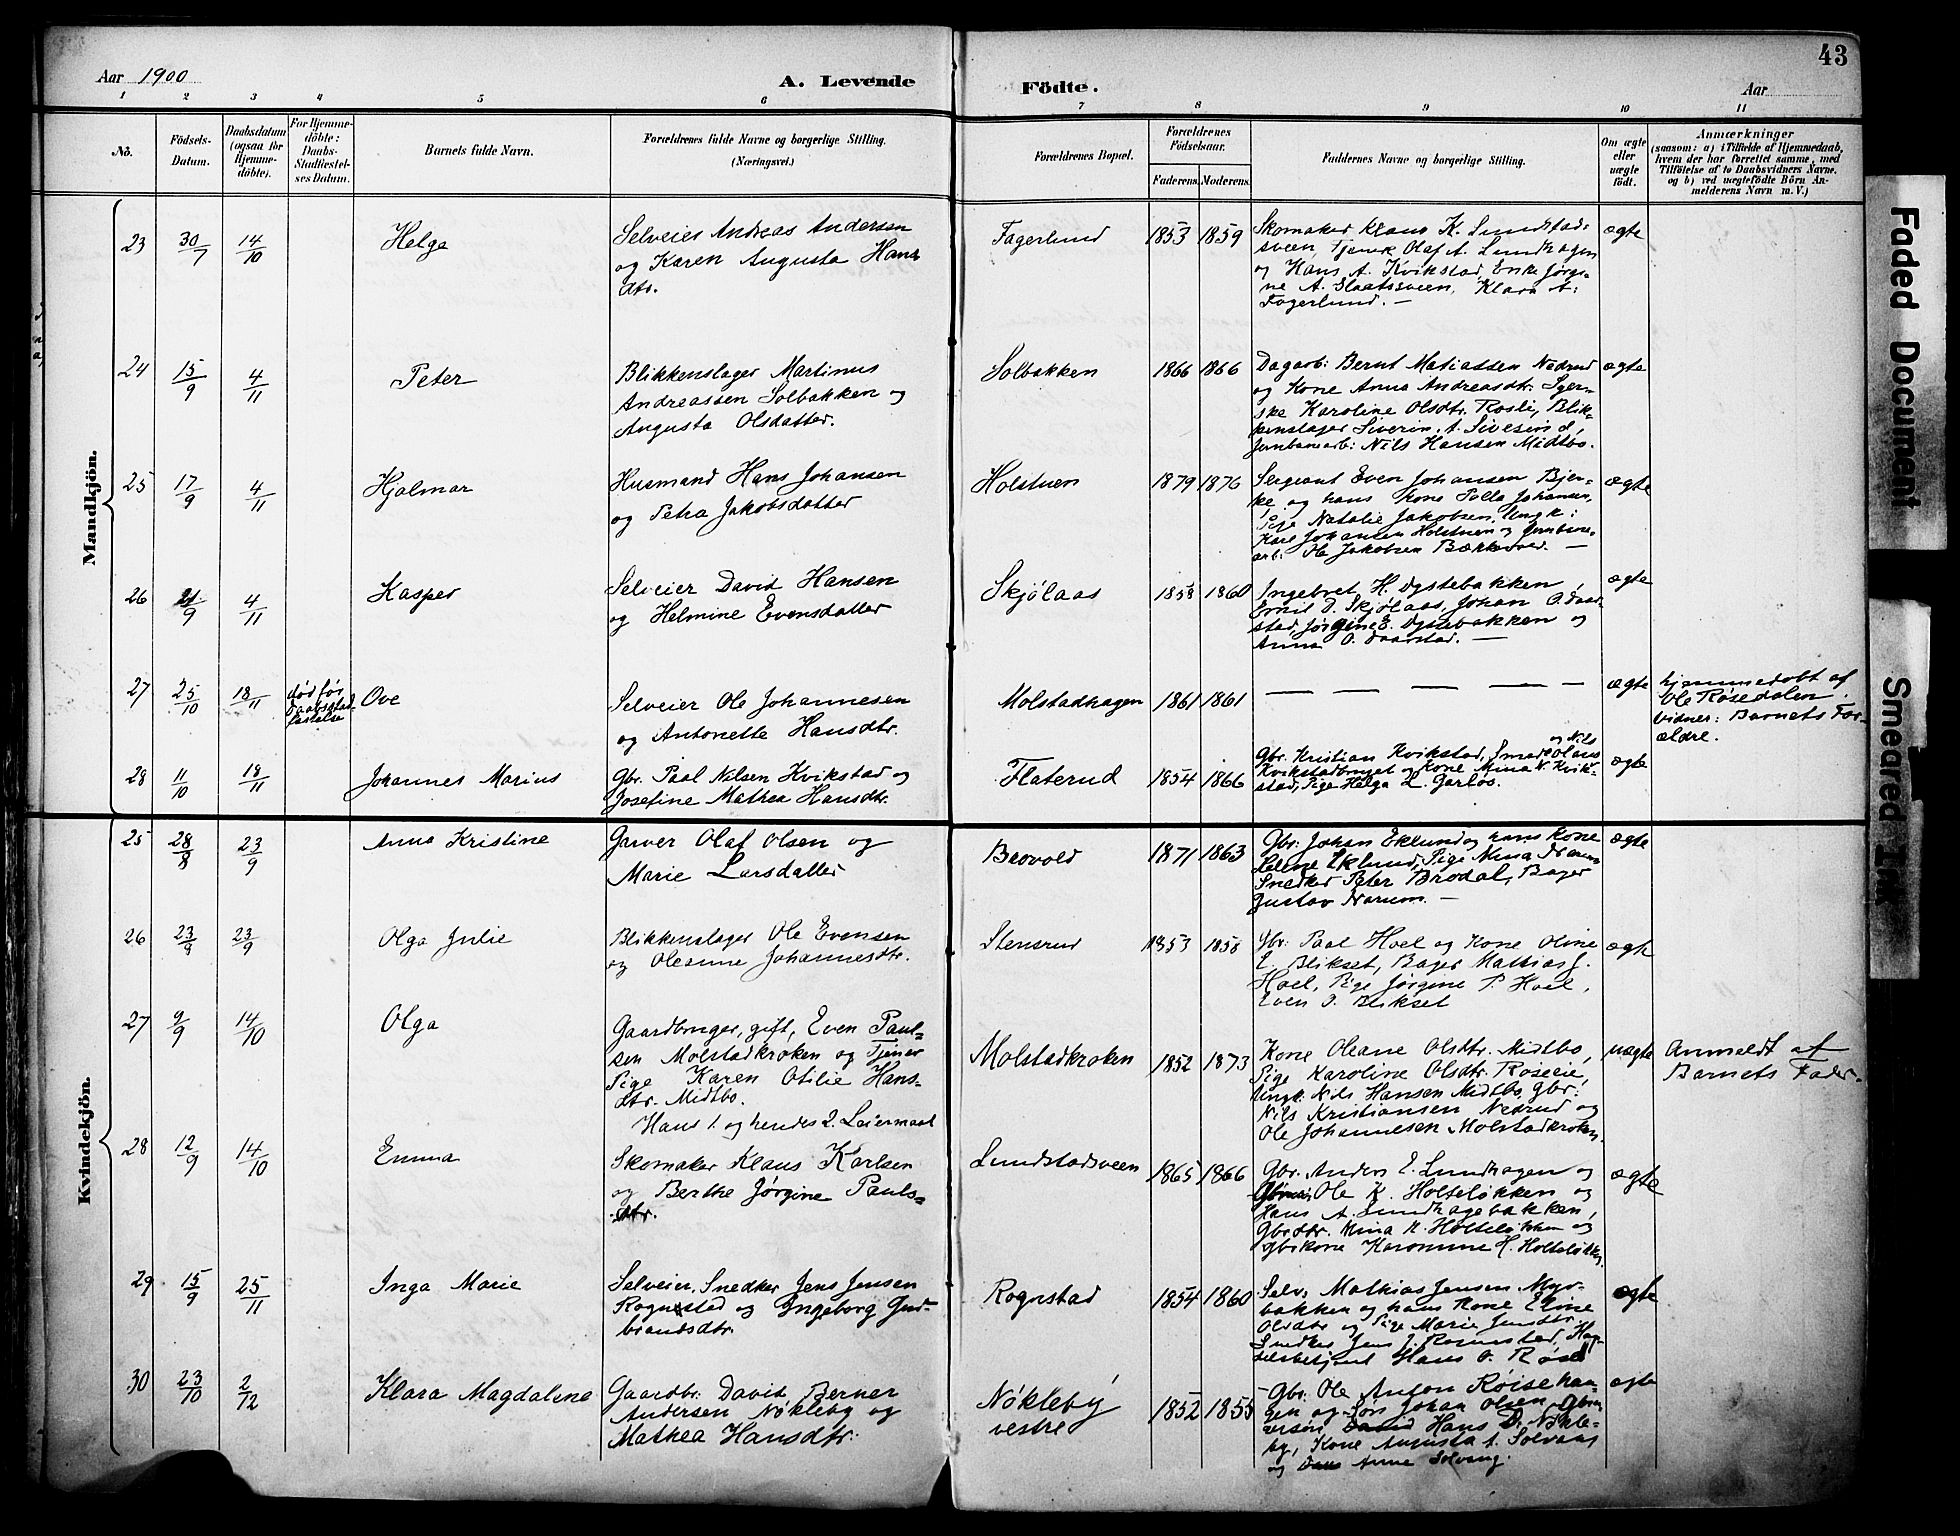 43
Aar 1900
A. Levende
Födte.
Aar
1 2 3 4 5 6 7 8 9 10 11
No.
Födsels-
Datum.
Daabsdatum
(ogsaa for
Hjemme-
döbte).
For Hjemme-
döbte:
Daabs-
Stadfæstel-
ses Datum.
Barnets fulde Navn.
Forældrenes fulde Navne og borgerlige Stilling.
(Næringsvei.)
Forældrenes Bopæl.
Forældrenes
Födselsaar.
Faderens. Moderens.
Faddernes Navne og borgerlige Stilling.
Om ægte
eller
uægte
født.
Anmærkninger
(saasom: a) i Tilfælde af Hjemmedaab,
hvem der har forrettet samme, med
Tilföielse af to Daabsvidners Navne,
og b) ved uægtefödte Börn An-
melderens Navn m. V.)
Mandkjön.
23 30/7 14/10 Helga
Selveier Andreas Andersen
og Karen Augusta Hans
dtr.
Fagerlund 1853 1859
Skomaker Klaus K. Lundstad-
sveen, Tjener Olaf A. Lundhagen
og Hans A. Kvikstad, Enke Jørgi-
ne A. Slaatssveen, Klara A.
Fagerlund. —
ægte
24 15/9 4/11 Peter
Blikkenslager Martinus
Andreassen Solbakken og
Augusta Olsdatter.
Solbakken 1866 1866
Dagarb: Bernt Matiassen Nedrud
og Kone Anna Andreasdtr.
Karoline Olsdtr. Roslie, Blik-
kenslager Siverin A.
Jernbanearb: Nils Hansen Midtbo.
ægte
25 17/9 4/11 Hjalmar
Husmand Hans Johansen
og Petra Jakobsdatter
Holstuen 1879 1876
Sergeant Even Johansen Bjer-
ke og hans Kone Polla Johansen,
Pige Natalie Jakobsen, Ungk:
Karl Johansen Holstuen og Jernbane-
arb: Ole Jakobsen Bækkevold. —
ægte
26 21/9 4/11 Kasper
Selveier David Hansen
og Helmine Evensdatter
Skjölaas 1858 1860
Ingebret H. Dystebakken,
Emil D. Skjølaas, Johan O. Daar-
stad, Jørgine E. Dystebakken og
Anna O. Daarstad. —
ægte
27 25/10 18/11
død før
Daabsstad-
fæstelse
Ove
Selveier Ole Johannesen
og Antonette Hansdtr.
Molstadhagen 1861 1861
— — — — —
ægte
hjemmedøbt af
Ole Røsedalen.
Vidner: Barnets For-
ældre.
28 11/10 18/11 Johannes Marius
Gbr. Paal Nilsen Kvikstad og
Josefine Mathea Hansdtr.
Flaterud 1854 1866
og Nils
Gbr. Kristian Kvikstad, Smed Olaus
Kvikstadbruget og Kone Mina N. Kvik-
stad, Pige Helga L. Garlos.
ægte
Kvindekjön.
25 28/8 23/9 Anna Kristine
Garver Olaf Olsen og
Marie Larsdatter
Brovold 1871 1863
Gbr: Johan Eklund og hans Kone
Helene Eklund, Pige Mina Narum
Snedker Peter Brodal, Bager
Gustav Narum. —
ægte
26 23/8 23/9 Olga Julie
Blikkenslager Ole Evensen
og Olesine Johannesdtr.
Stensrud 1853 1858
Gbr: Paal Hoel og Kone Oline
E. Blikset, Bager Mathias J.
Hoel, Pige Jørgine P. Hoel,
Even O. Blikset
ægte
27 9/9 14/10 Olga
Gaardbruger, gift, Even Paul-
sen Molstadkroken og Tjener
Pige Karen Otilie Hans-
dtr. Midtbo.
Hans 1. og hendes 2. Leiermaal
Molstadkroken 1852 1873
Kone Oleane Olsdtr. Midtbo,
Pige Karoline Olsdtr. Roselie,
Ungk. Nils Hansen Midtbo, Gbr.
Nils Kristiansen Nedrud og
Ole Johannesen Molstadkroken.
uægte
Anmeldt af
Barnets Fader.
28 12/9 14/10 Emma
Skomaker Klaus Karlsen
og Berthe Jørgine Pauls-
dtr.
Lundstadsveen 1865 1866
Gbr. Anders E. Lundhagen og
Ole K. Holteløkken og
Hans A. Lundhagebakken,
Gbrdtr. Mina K. Holteløkken og
Gbrkone Karomine H. Holteløkken
ægte
29 15/9 25/11 Inga Marie
Selveier, Snedker Jens Jensen
Rognstad og Ingeborg Gud-
brandsdtr.
Rognstad 1854 1860
Selv. Mathias Jensen Myr-
bakken og hans Kone Eline
Olsdtr og Pige Marie Jensdtr.
Snedker Jens J. Rognstad, Han-
delsbetjent Hans O. Røse
ægte
30 23/10 2/12 Klara Magdalene
Gaardbr. David Berner
Andersen Nökleby og
Mathea Hansdtr.
Nökleby
vestre
1852 1855
Gbr. Ole Anton Røisehau-
gen og Johan Olsen,
Hans D. Nökle-
by, Kone Augusta A. Solvang
og Anne Solvang.
ægte
Faded Document
Smeared Ink